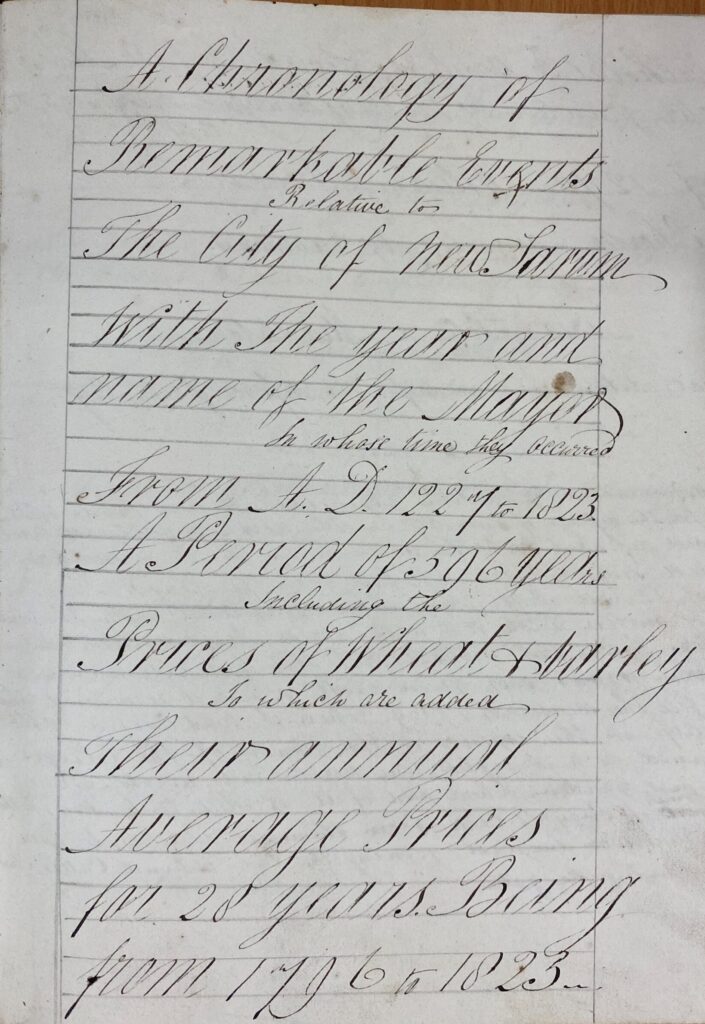 A Chronology of
Remarkable Events
Relative to
The City of New Sarum
With The year and
name of the Mayor
In whose time they occurred
From A. D. 1227 to 1823.
A Period of 596 years
Including the
Prices of Wheat & barley
To which are added
Their annual
Average Prices
for 28 years. Being
from 1796 to 1823